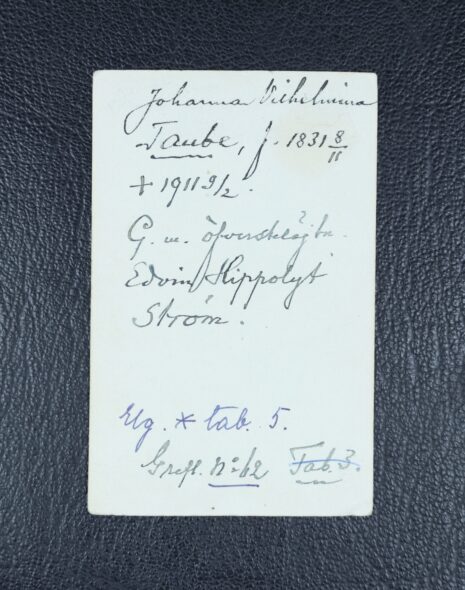 Johanna Vilhelmina
Taube, f. 1831 8/11
+ 1911 9/2.
G. m. öfverstelöjtn.
Edvin Hippolyt
Ström.
Elg. * tab. 5.
Grefl. No 62 Tab. 3.